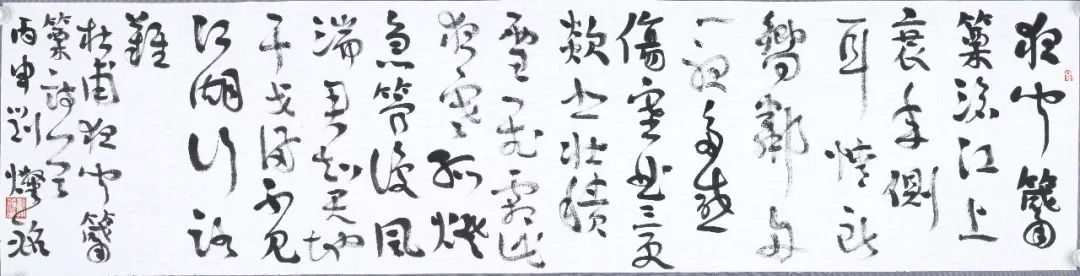 夜聞觱
篥滄江上
衰年側
耳情所
嚮鄰舟
一聽多感
傷塞曲三更
欻悲壯積
雪飛霜此
夜寒孤燈
急管復風
湍君知天地
干戈滿不見
江湖行路
難
杜甫夜聞觱
篥詩一首
丙申劉燦銘